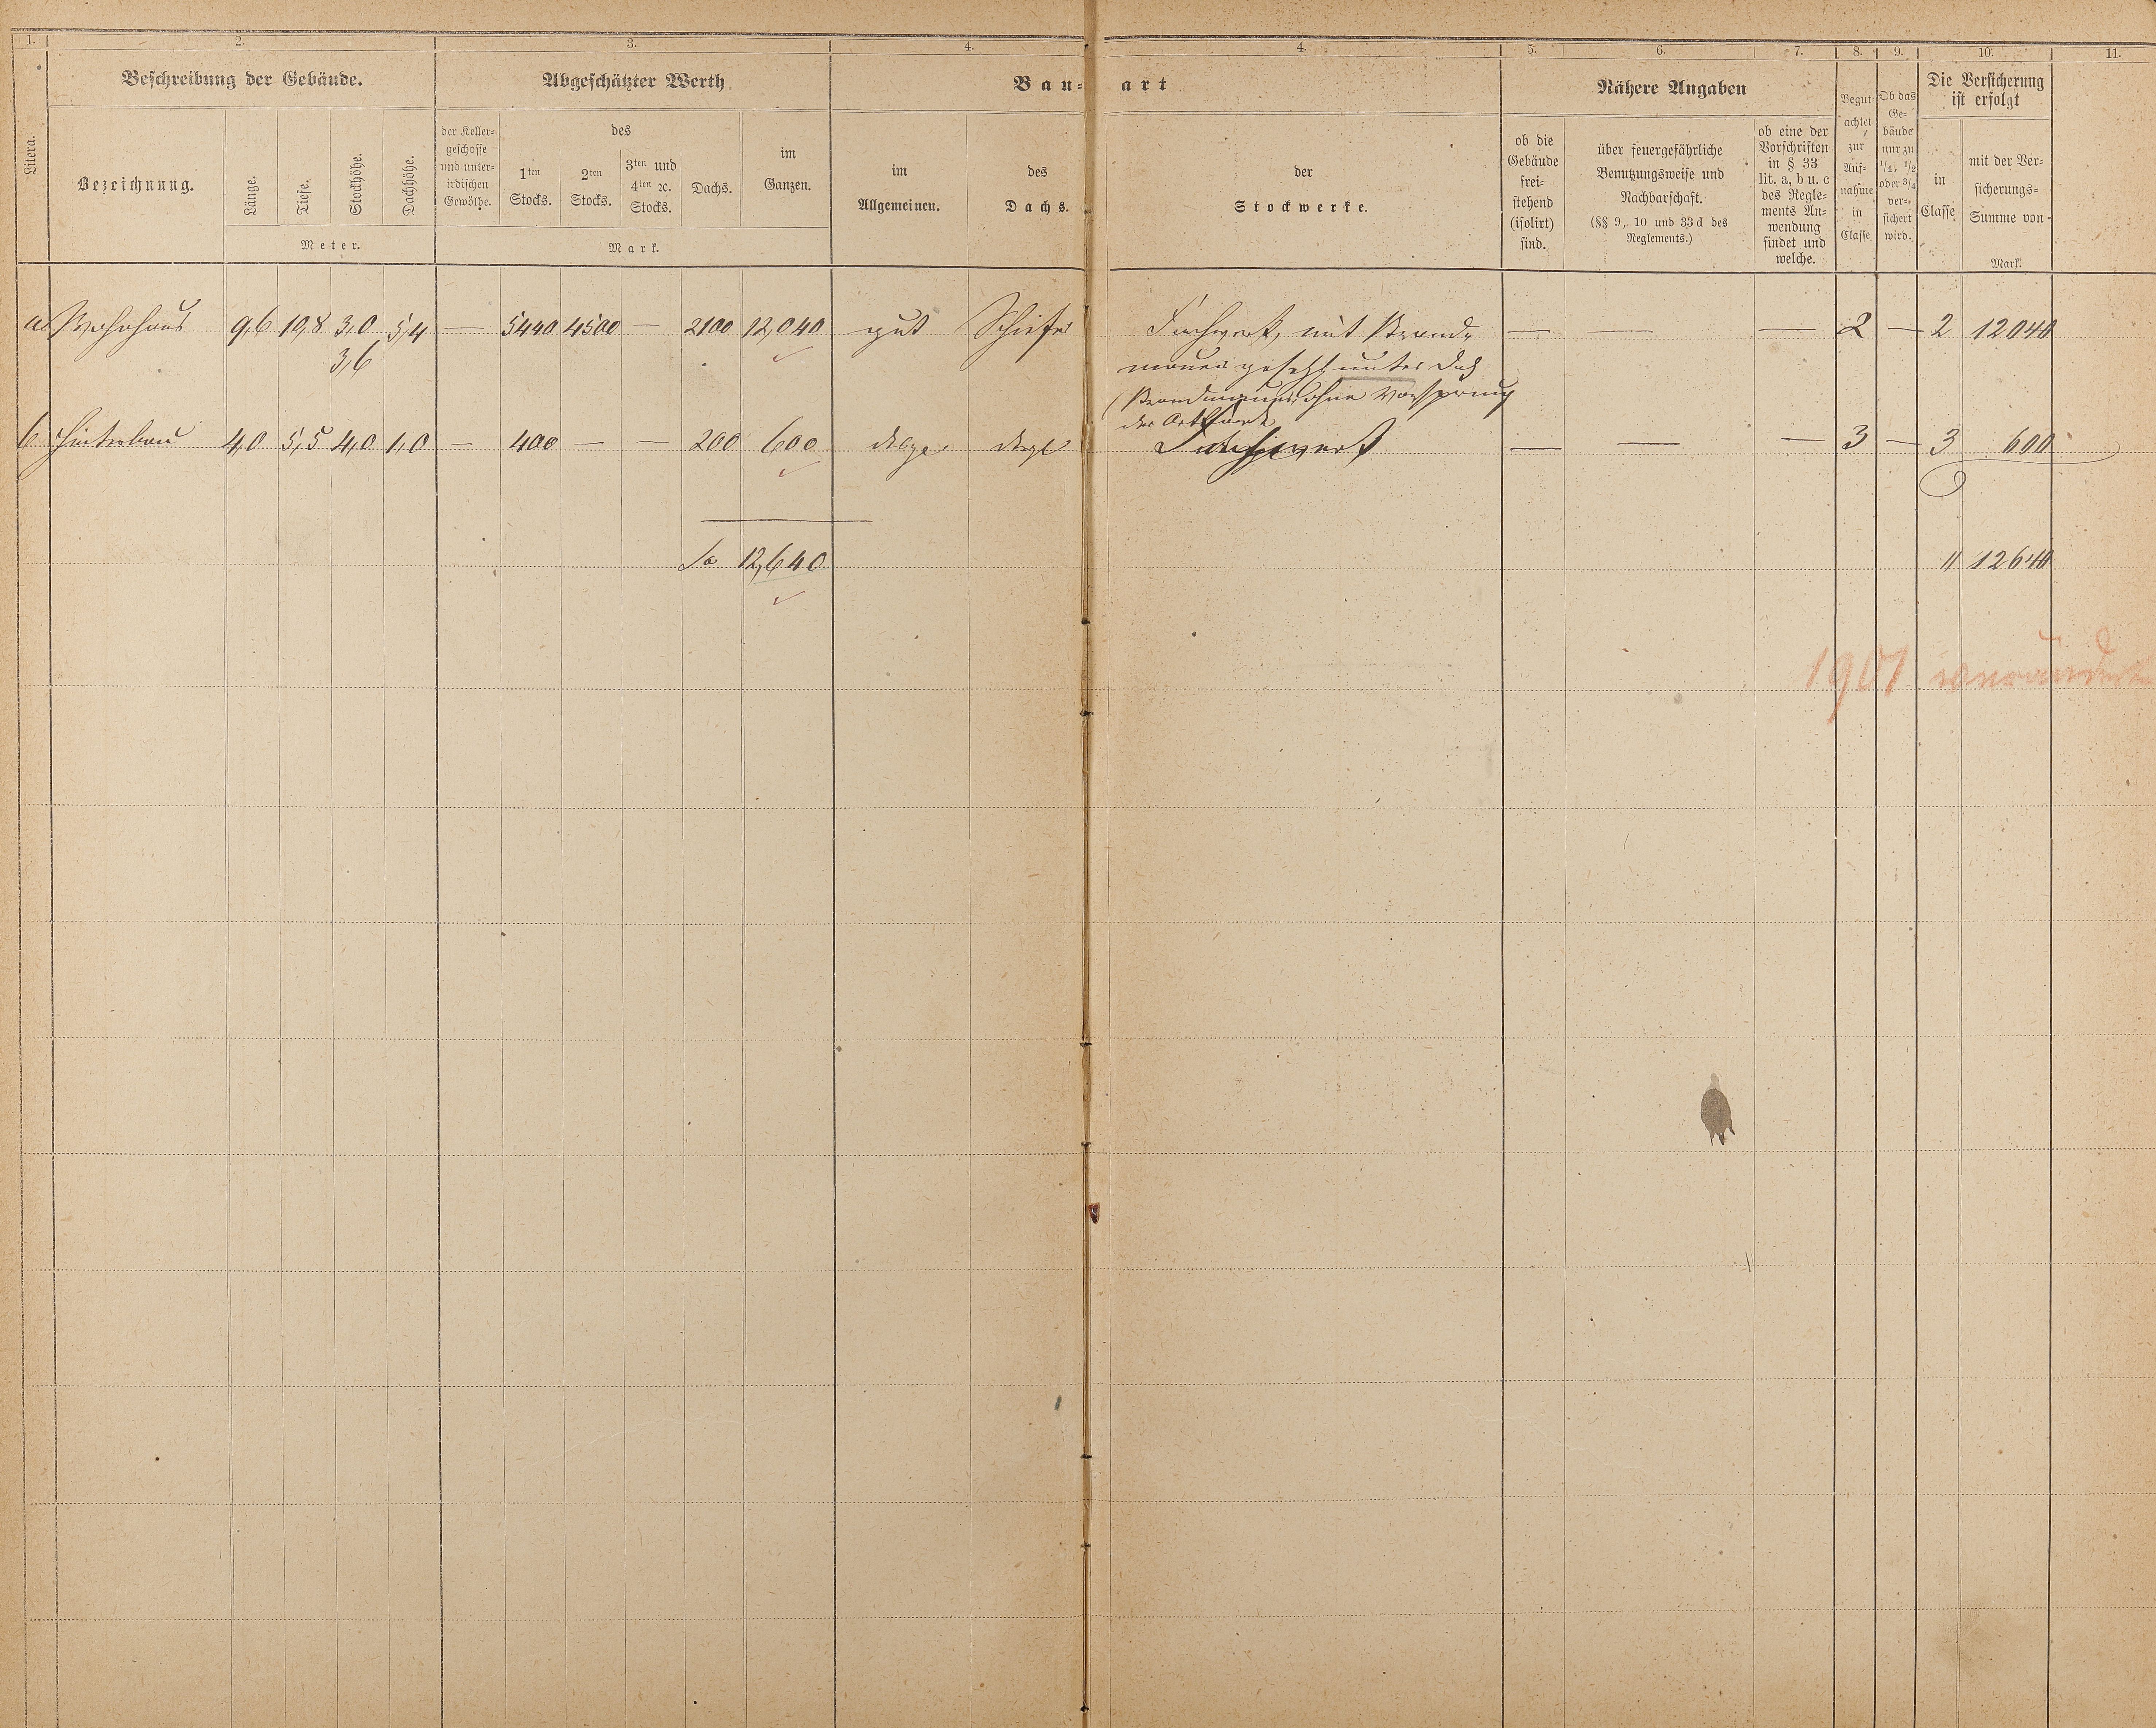 1. 2. 3. 4. 4. 5. 6. 7. 8. 9. 10. 11.
Beschreibung der Gebäude. Abgeschätzter Werth Bau- art Nähere Angaben Die Versicherung
ist erfolgt
Litera.
Bezeichnung.
Länge.
Tiefe.
Stockhöhe.
Dachhöhe.
Meter.
der Keller-
geschosse
und unter-
irdischen
Gewölbe.
des
1ten
Stocks.
2ten
Stocks.
3ten und
4ten ꝛc.
Stocks.
Dachs.
im
Ganzen.
Mark.
im
Allgemeinen.
des
Dachs.
der
Stockwerke.
ob die
Gebäude
frei-
stehend
(isolirt)
sind.
über feuergefährliche
Benutzungsweise und
Nachbarschaft.
(§§ 9, 10 und 33 d des
Reglements.)
ob eine der
Vorschriften
in § 33
lit. a, b u. c
des Regle-
ments An-
wendung
findet und
welche.
Begut-
achtet
zur
Auf-
nahme
in
Classe
Ob das
Ge-
bäude
nur zu
1/4, 1/2
oder 3/4
ver-
sichert
wird.
in
Classe
mit der Ver-
sicherungs-
Summe von
Mark.
a Wohnhaus 9,6 10,8 3,0 5,4 — 5440 4500 — 2100 12,040 gut Schiefer Fachwerk, mit Brand- — — — 2 — 2 12040
3,6 mauer gesetzt unter Dach
(Brandmauer ohne Vorsprung
der
b Hinterbau 4,0 5,5 4,0 1,0 — 400 — — 200 600 desgl. desgl Fachwerk — — — 3 — 3 600
Sa 12,640 " 12640
1901 verändert